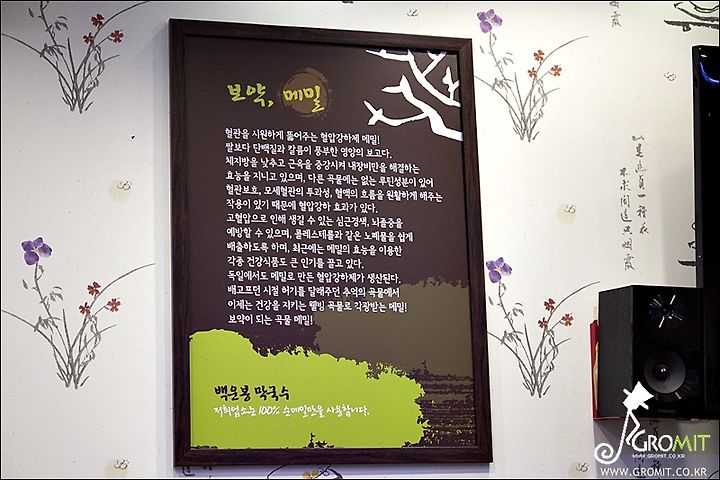 보약, 메밀
혈관을 시원하게 뚫어주는 혈압강하제 메밀!
쌀보다 단백질과 칼륨이 풍부한 영양의 보고다.
체지방을 낮추고 근육을 증강시켜 내장비만을 해결하는
효능을 지니고 있으며, 다른 곡물에는 없는 루틴성분이 있어
혈관보호, 모세혈관의 투과성, 혈액의 흐름을 원활하게 해주는
작용이 있기 때문에 혈압강하 효과가 있다.
고혈압으로 인해 생길 수 있는 심근경색, 뇌졸중을
예방할 수 있으며, 콜레스테롤과 같은 노폐물을 쉽게
배출하도록 하며, 최근에는 메밀의 효능을 이용한
각종 건강식품도 큰 인기를 끌고 있다.
독일에서도 메밀로 만든 혈압강하제가 생산된다.
배고프던 시절 허기를 달래주던 추억의 곡물에서
이제는 건강을 지키는 웰빙 곡물로 각광받는 메밀!
보약이 되는 곡물 메밀!
백운봉 막국수
저희업소는 100% 순메밀만을 사용합니다.
GROMIT
WWW.GROMIT.CO.KR
WWW.GROMIT.CO.KR